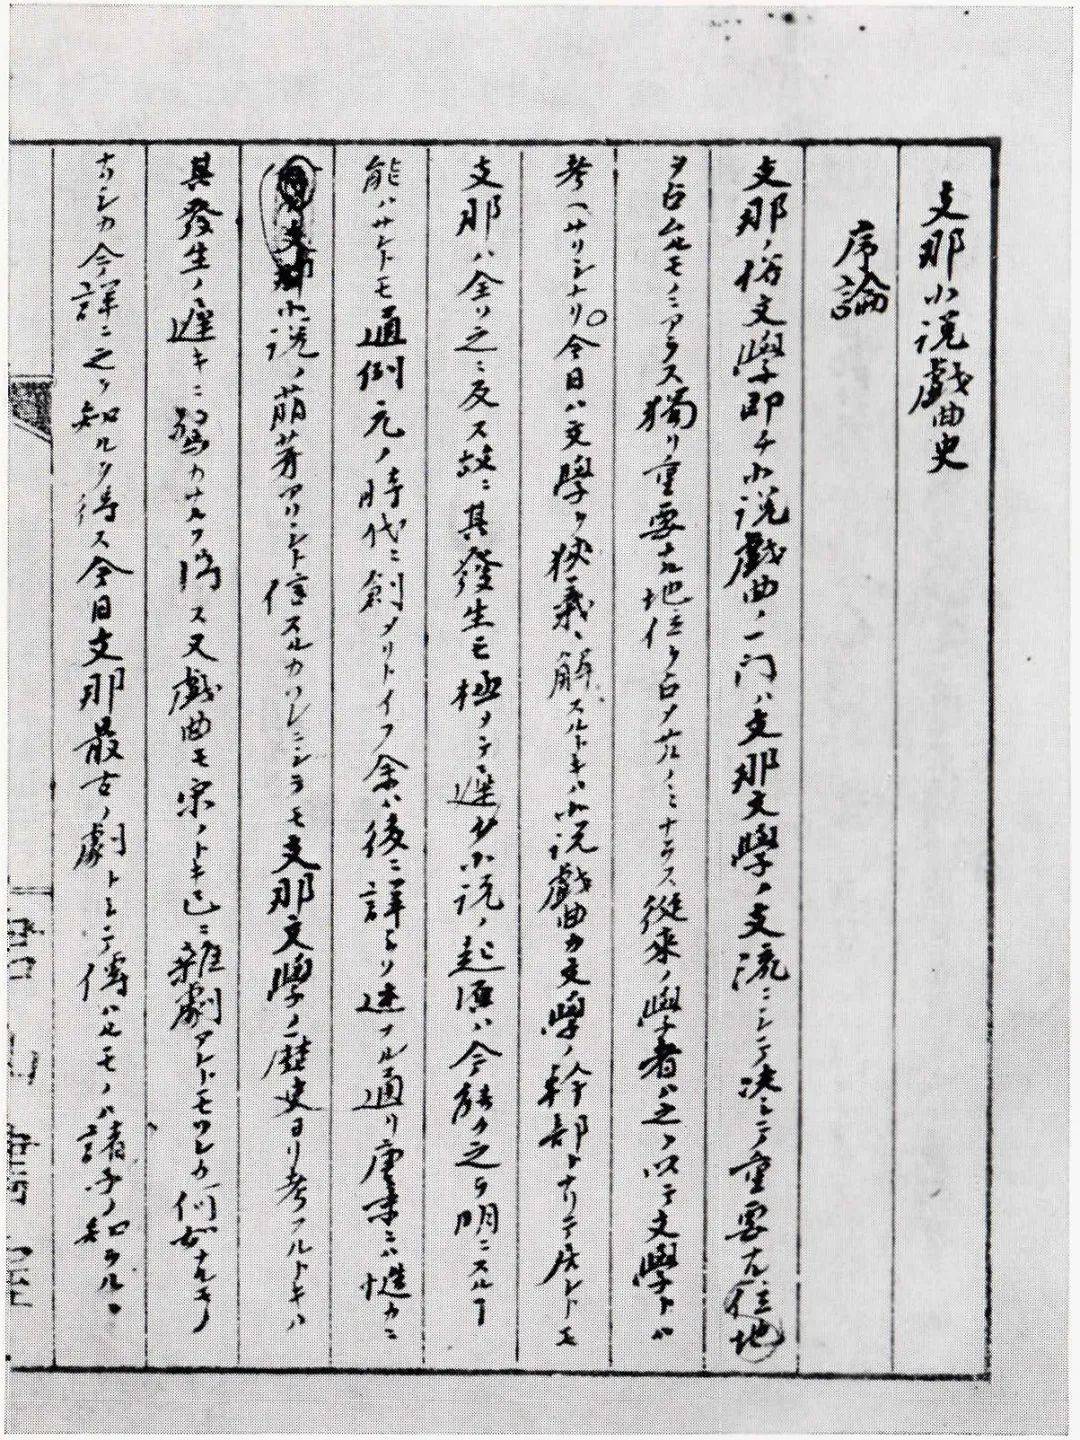 支那小説戯曲史
序論
支那ノ俗文學即チ小説戯曲ノ一門ハ支那文學ノ支流ニシテ決シテ重要ナル位地
ヲ占ムルモノニアラス獨リ重要ナル地位ヲ占メサルノミナラス從來ノ學者ハ之ヲ以テ文學トハ
考ヘサリシナリ○今日ハ文學ヲ狹義ニ解スルトキハ小説戯曲カ文學ノ幹部トナリテ居レトモ
支那ハ全ク之ニ反ス故ニ其發生モ極メテ遲ク小説ノ起原ハ今能ク之ヲ明ニスルヿ
能ハサレトモ通例元ノ時代ニ創マリトイフ余ハ後ニ詳シク述フル通リ唐末ニハ慥カニ
小説ノ萠芽アリシト信スルカソレニシテモ支那文學ノ歴史ヨリ考フルトキハ
其發生ノ遲キニ驚カサルヲ得ス又戯曲モ宋ノトキ已ニ雜劇アレトモソレカ何如ナルモノ
ナリシカ今詳ニ之ヲ知ルヲ得ス今日支那最古ノ劇トシテ傳ハルモノハ諸子ノ知ラルヽ